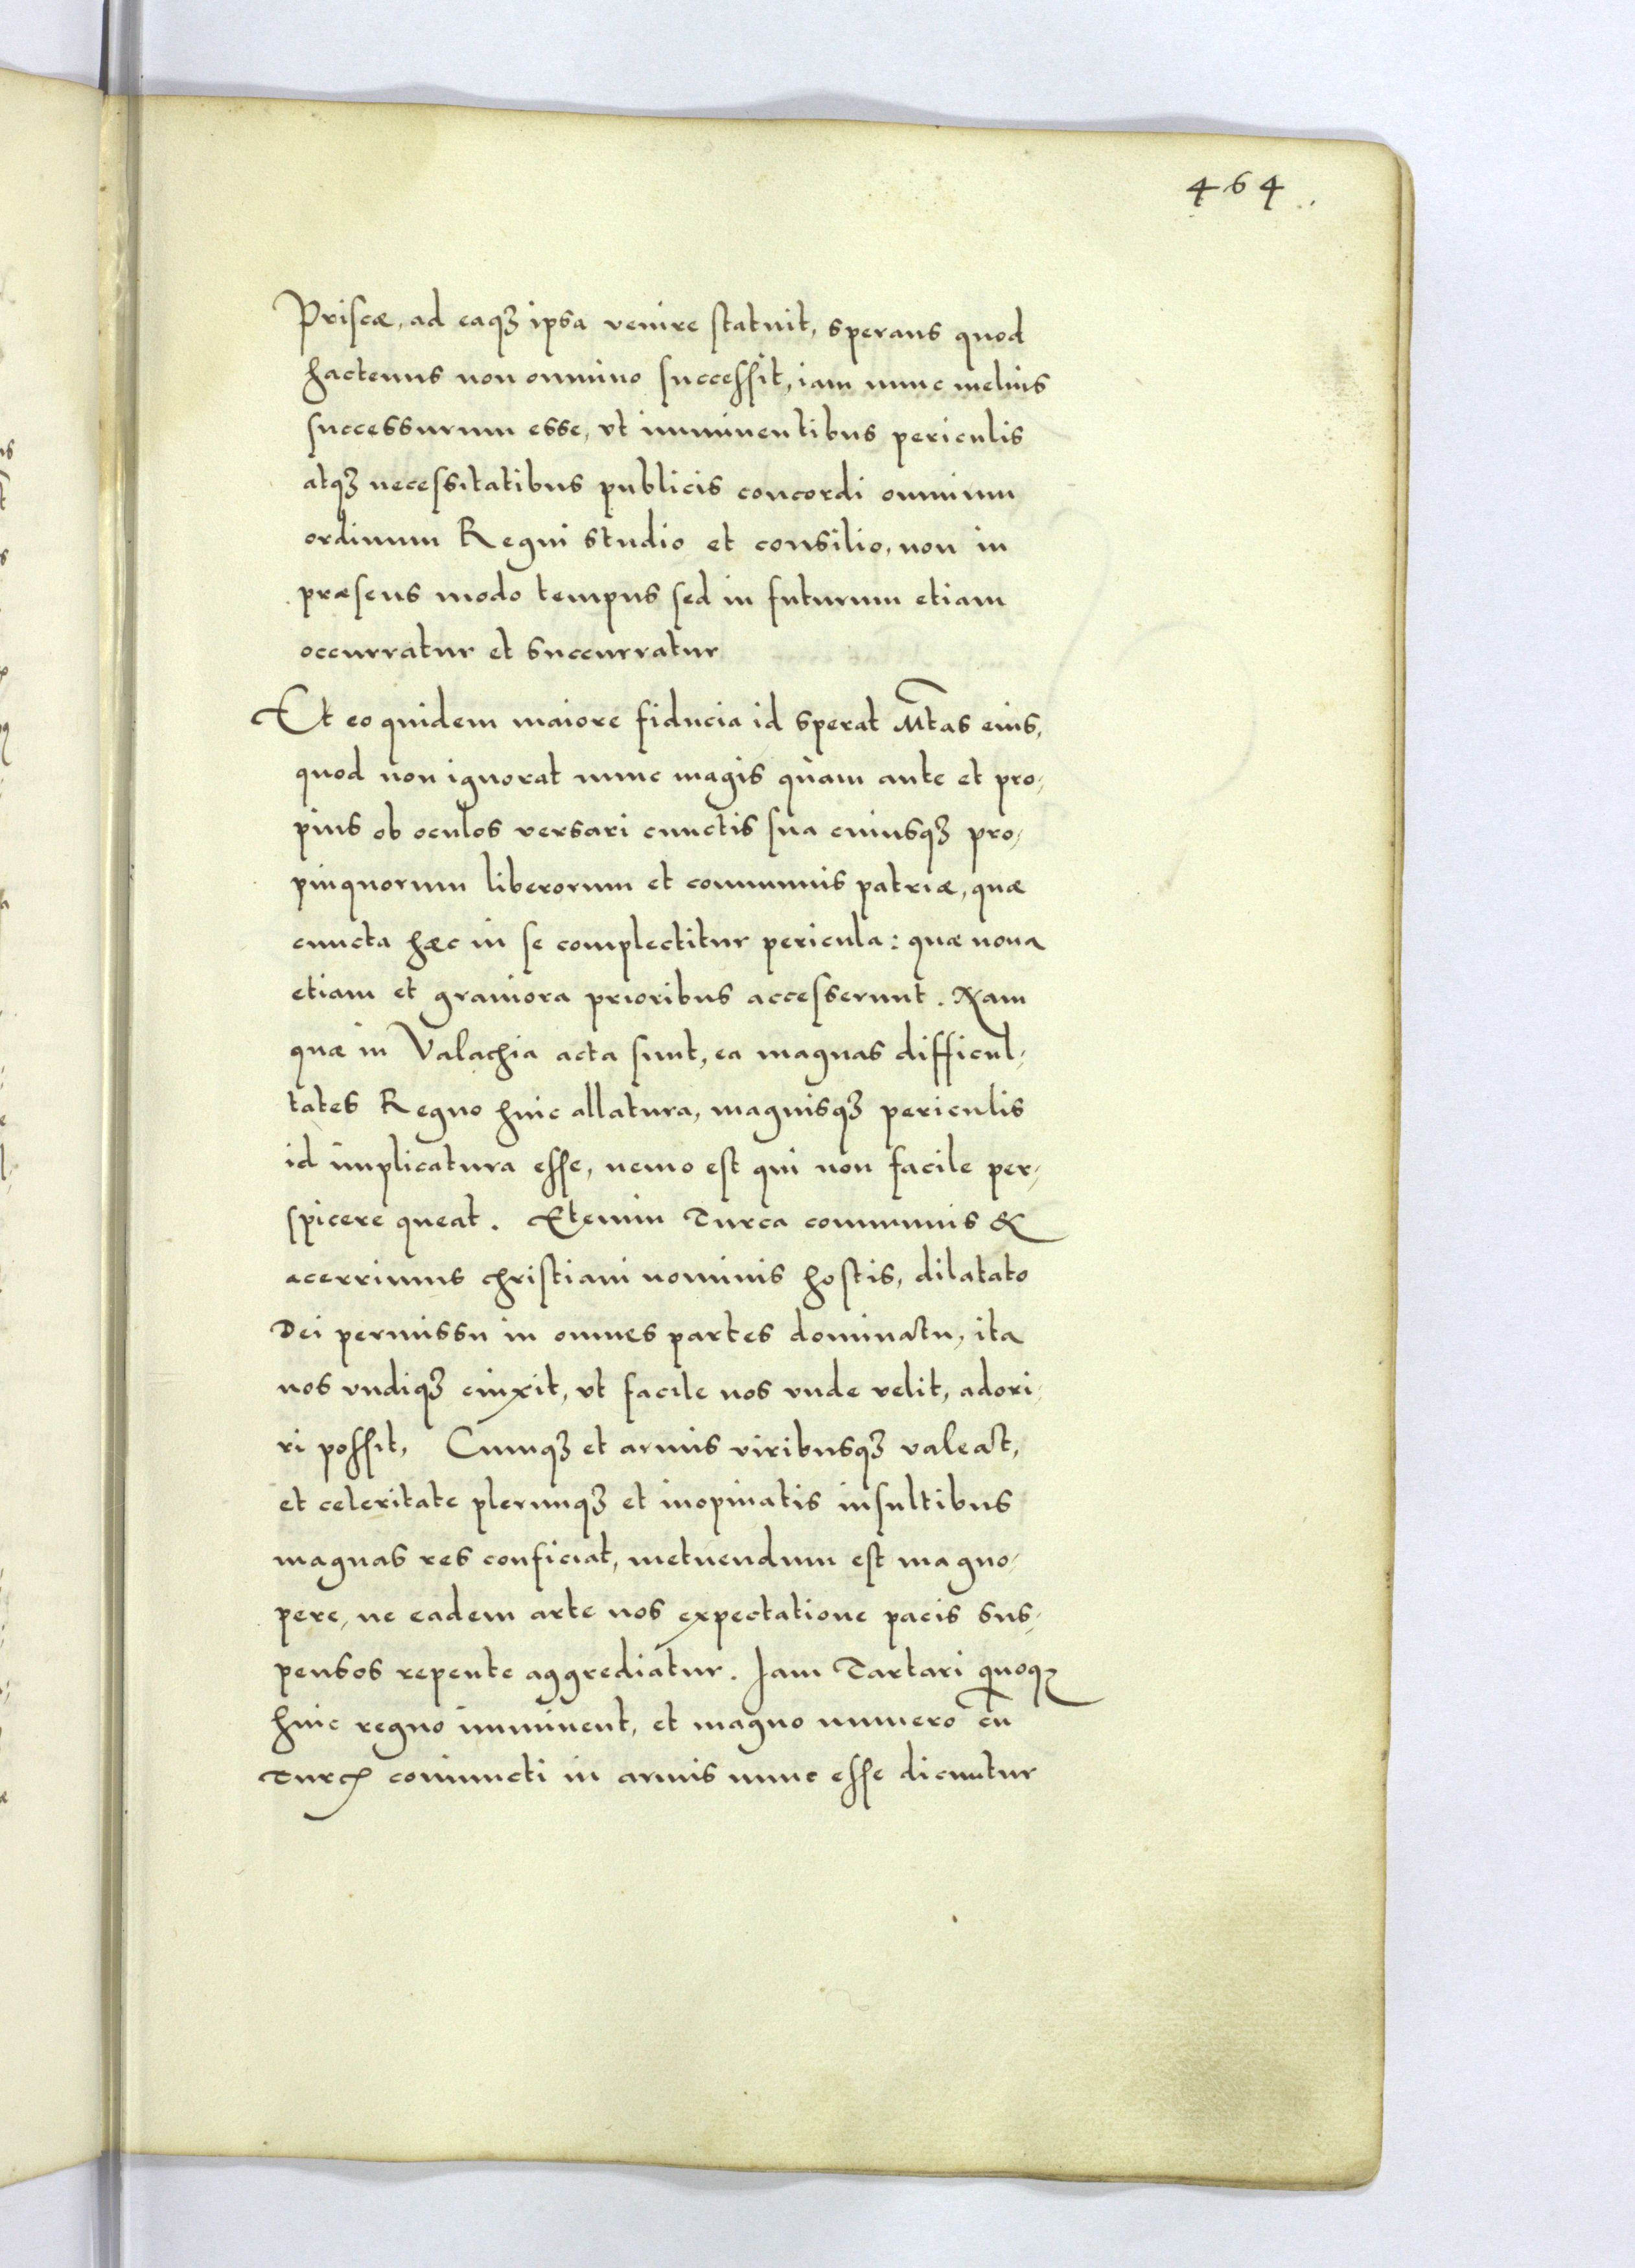 464
Priscæ, ad eaqꝫ ipsa venire statuit, sperans quod
hactenus non omnino successit, iam nunc melius
successurum esse, vt imminentibus periculis
atqꝫ necessitatibus publicis concordi omnium
ordinum Regni studio et consilio, non in
præsens modo tempus sed in futurum etiam
occurratur et succurratur
Et eo quidem maiore fiducia id sperat Mtas eius,
quod non ignorat nunc magis quàm ante et pro-
pius ob oculos versari cunctis sua cuiusqꝫ pro-
pinquorum liberorum et communis patriæ, quæ
cuncta hæc in se complectitur pericula: quæ noua
etiam et grauiora prioribus accesserunt. Nam
quæ in Valachia acta sunt, ea magnas difficul-
tates Regno huic allatura, magnisqꝫ periculis
id implicatura esse, nemo est qui non facile per-
spicere queat. Etenim Turca communis &
acerrimus christiani nominis hostis, dilatato
Dei permissu in omnes partes dominatu, ita
nos vndiqꝫ cinxit, vt facile nos vnde velit, adori-
ri possit, Cumqꝫ et armis viribusqꝫ valeat,
et celeritate plerunqꝫ et inopinatis insultibus
magnas res conficiat, metuendum est magno-
pere, ne eadem arte nos expectatione pacis sus-
pensos repente aggrediatur. Iam Tartari quoqꝫ
huic regno imminent, et magno numero cū
Turcis coniuncti in armis nunc esse dicuntur